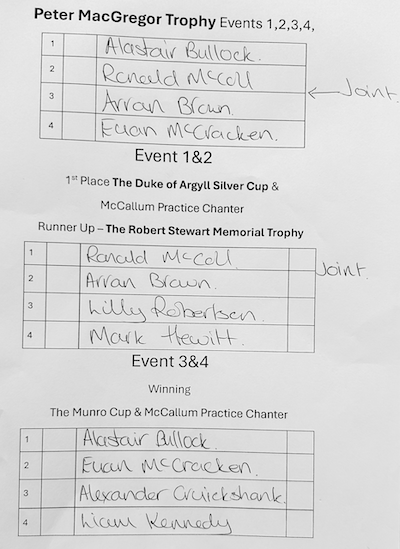 Peter MacGregor Trophy Events 1,2,3,4,
1 Alastair Bullock.
2 Ranald McColl
3 Arran Brown.
← Joint.
4 Euan McCracken.
Event 1&2
1st Place The Duke of Argyll Silver Cup &
McCallum Practice Chanter
Runner Up – The Robert Stewart Memorial Trophy
1 Ranald McColl. Joint.
2 Arran Brown.
3 Lilly Robertson.
4 Mark Hewitt.
Event 3&4
Winning
The Munro Cup & McCallum Practice Chanter
1 Alastair Bullock.
2 Euan McCracken.
3 Alexander Cruickshank.
4 Liam Kennedy